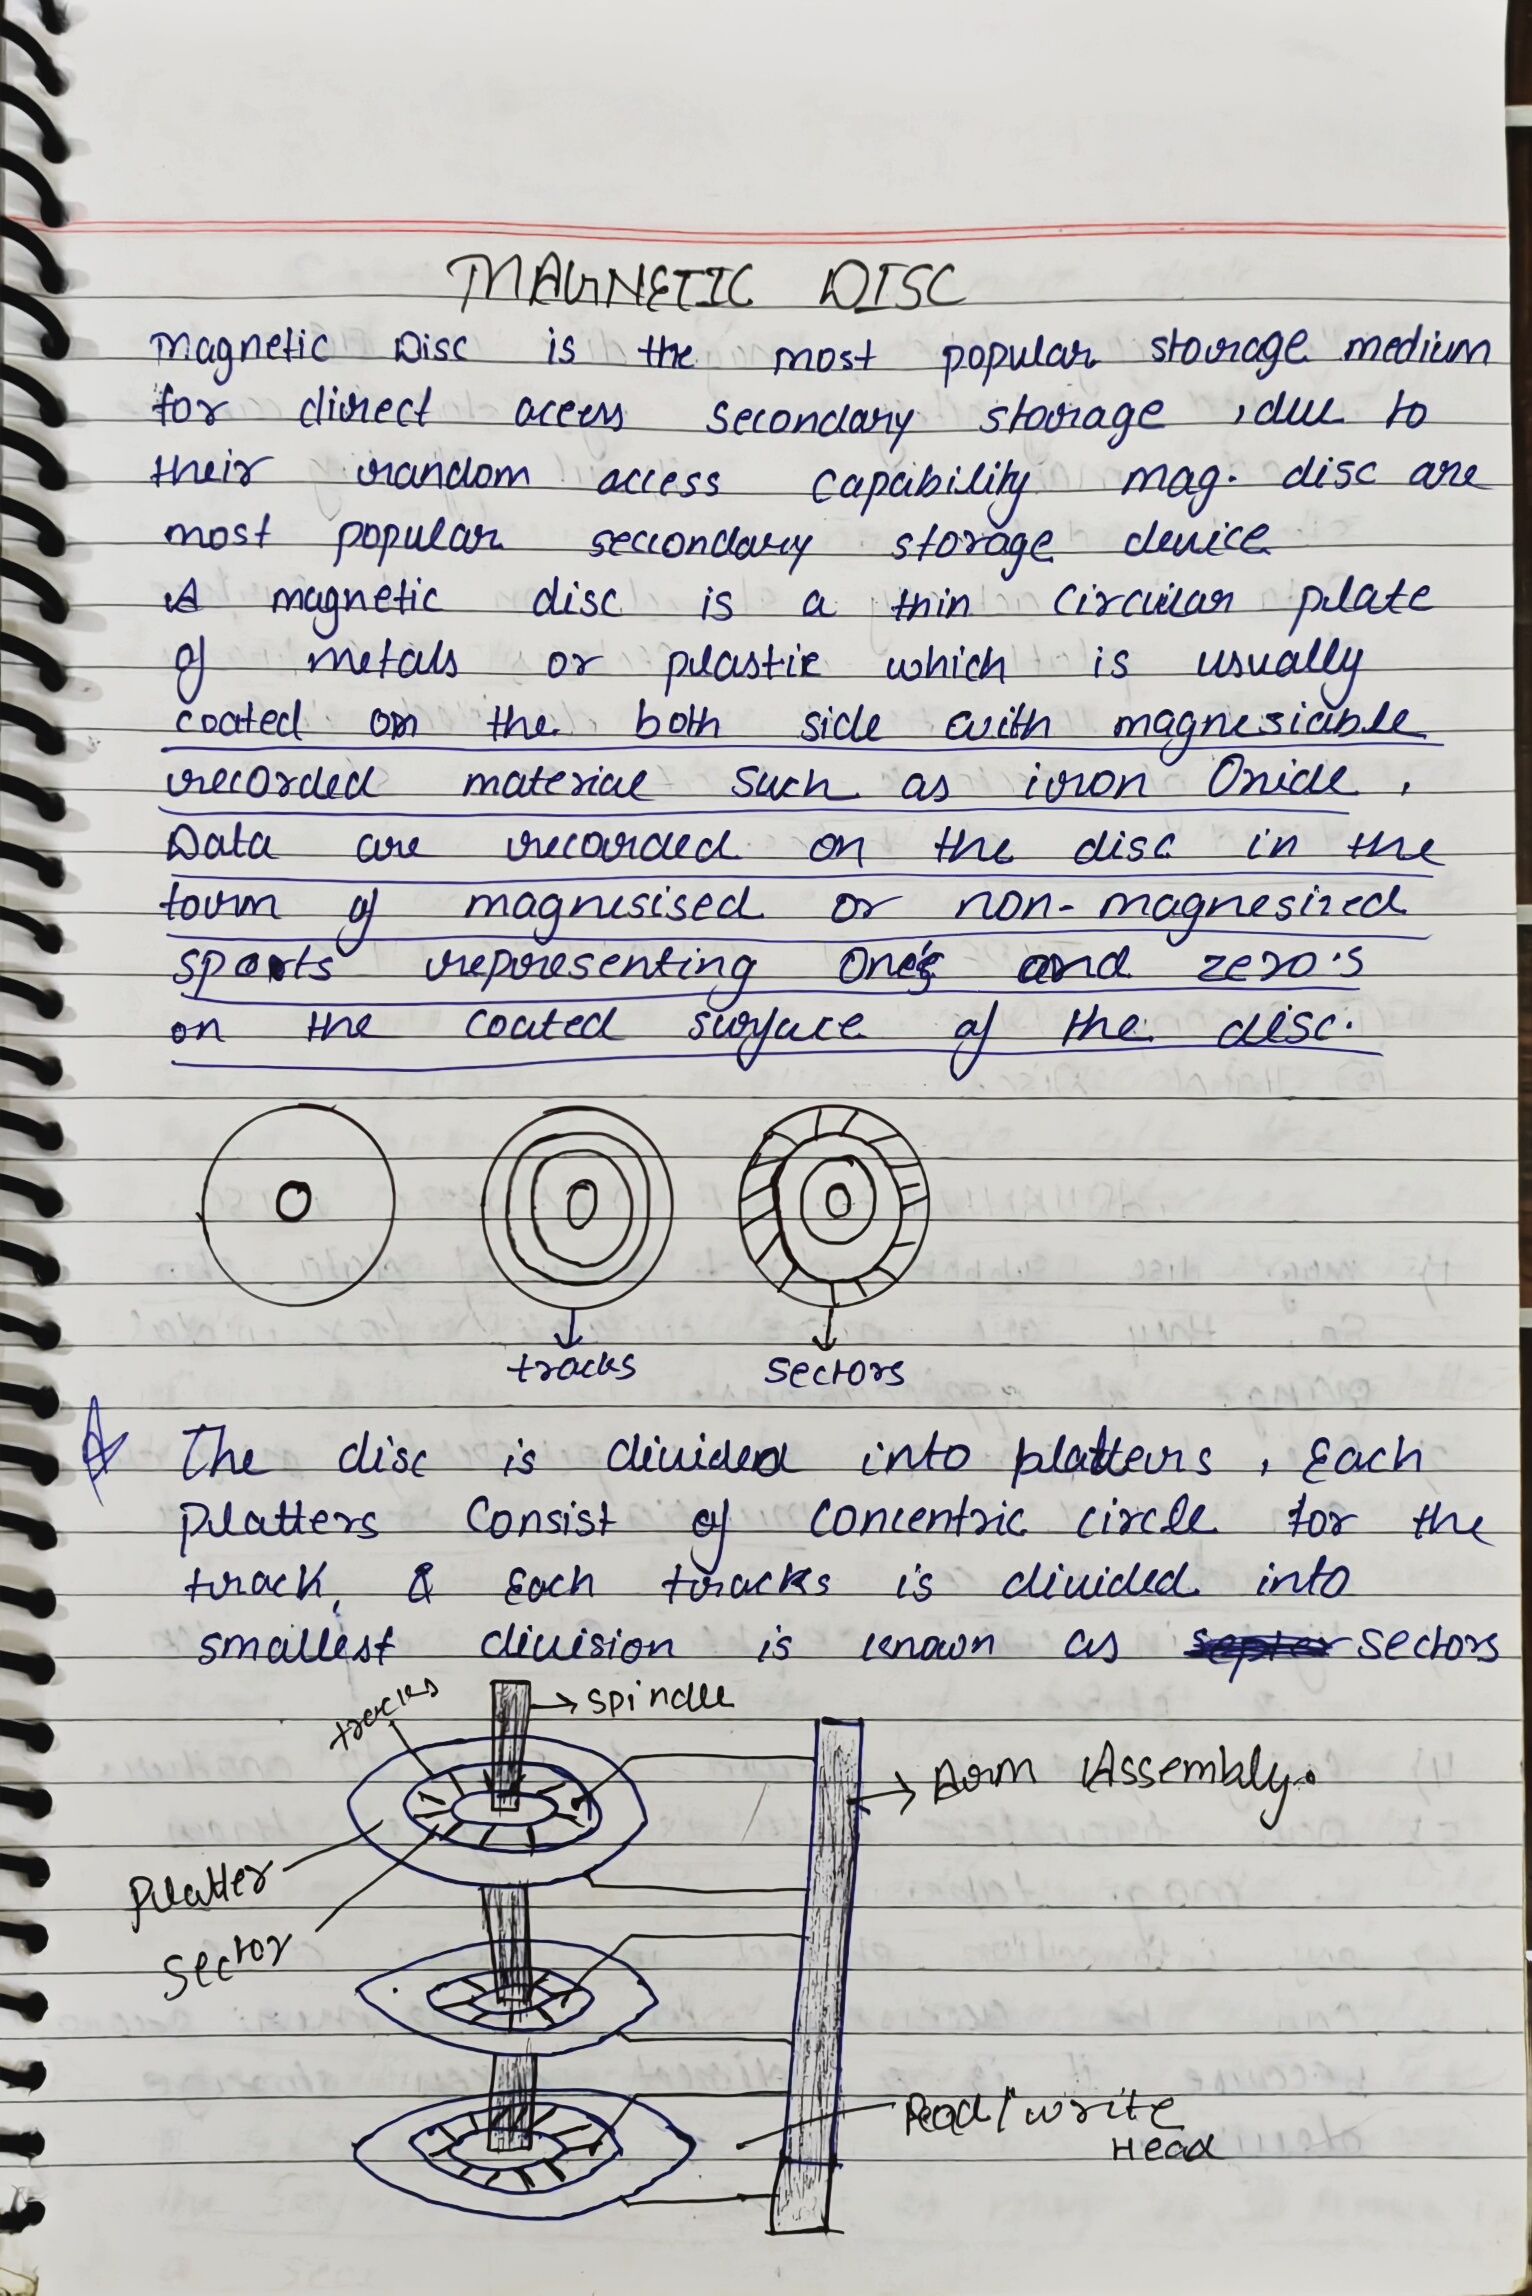 MAGNETIC DISC
Magnetic Disc is the most popular storage medium
for direct acess secondary storage , due to
their random access capability mag. disc are
most popular seccondary storage device
A magnetic disc is a thin circular plate
of metals or plastic which is usually
coated on the both side with magnesiable
recorded material such as iron Oxide .
Data are recorded on the disc in the
form of magnisised or non-magnesized
sports representing One's and zero's
on the coated surface of the disc.
tracks sectors
The disc is divided into platters , Each
Platters Consist of Concentric circle for the
track, & Each tracks is divided into
smallest division is known as sectors
tracks
spindle
Arm Assembly.
Platter
Sector
Read/write
Head